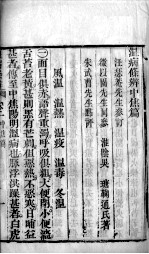 溫病條辨中焦篇
汪瑟菴先生參訂
徵以園先生同參　淮陰吳　瑭鞠通氏著
朱武曹先生點評
風溫　溫熱　溫疫　溫毒　冬溫
一面目俱赤語聲重濁呼吸俱粗大便閉小便澀
舌苔老黃甚則黑有芒刺但惡熱不惡寒日晡益
甚者傳至中焦陽明溫病也脈浮洪躁甚者白虎